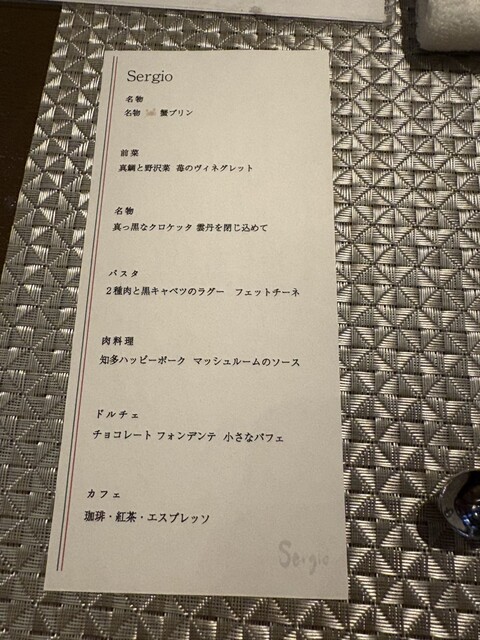 Sergio
名物
名物 蟹プリン
前菜
真鯛と野沢菜 苺のヴィネグレット
名物
真っ黒なクロケッタ 雲丹を閉じ込めて
パスタ
2種肉と黒キャベツのラグー フェットチーネ
肉料理
知多ハッピーポーク マッシュルームのソース
ドルチェ
チョコレート フォンデンテ 小さなパフェ
カフェ
珈琲・紅茶・エスプレッソ
Sergio